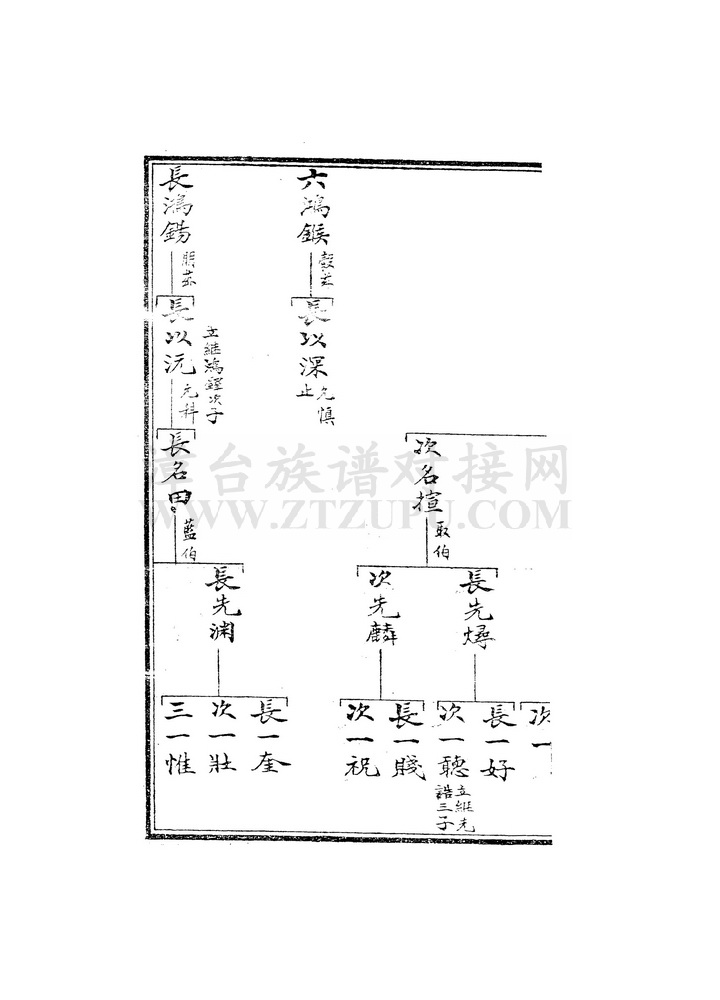 六鴻鍭
長以深
允慎
止
次名揎
取伯
長先燖
次先麟
次一
長一好
次一聽
立繼先
誥三子
長一賤
次一祝
長鴻錫
長以沅
立繼鴻鐙次子
元科
長名田
藍伯
長先渊
長一奎
次一壯
三一惟
漳台族谱对接网
WWW.ZTZUPU.COM